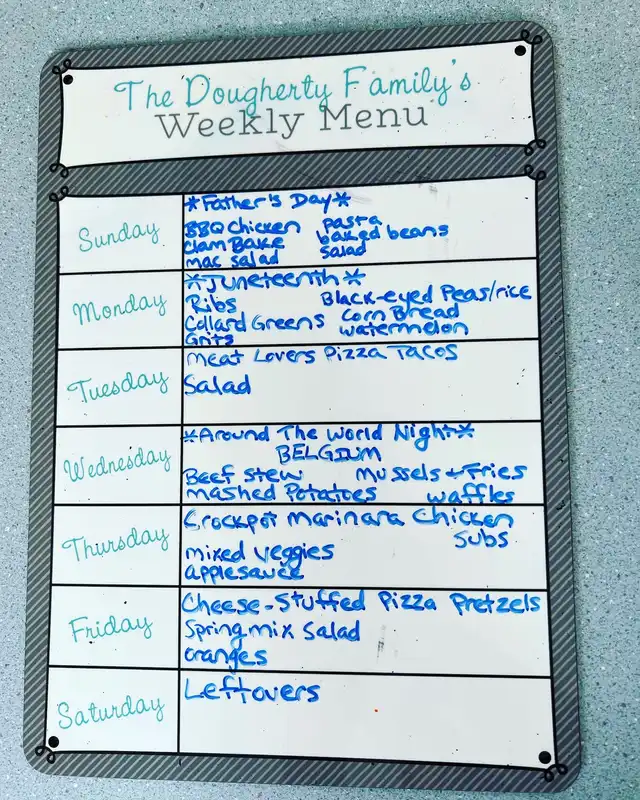 The Dougherty Family's
Weekly Menu
Sunday
*Father's Day*
BBQ Chicken pasta
Clam Bake baked beans
mac salad salad
Monday
*Juneteenth*
Ribs Black-eyed Peas/rice
Collard Greens Corn Bread
Grits watermelon
Tuesday
Meat Lovers Pizza Tacos
Salad
Wednesday
*Around The World Night*
BELGIUM
Beef stew Mussels + Fries
mashed Potatoes waffles
Thursday
Crockpot Marinara Chicken
Subs
mixed veggies
applesauce
Friday
Cheese-Stuffed Pizza Pretzels
Spring mix Salad
oranges
Saturday
Leftovers